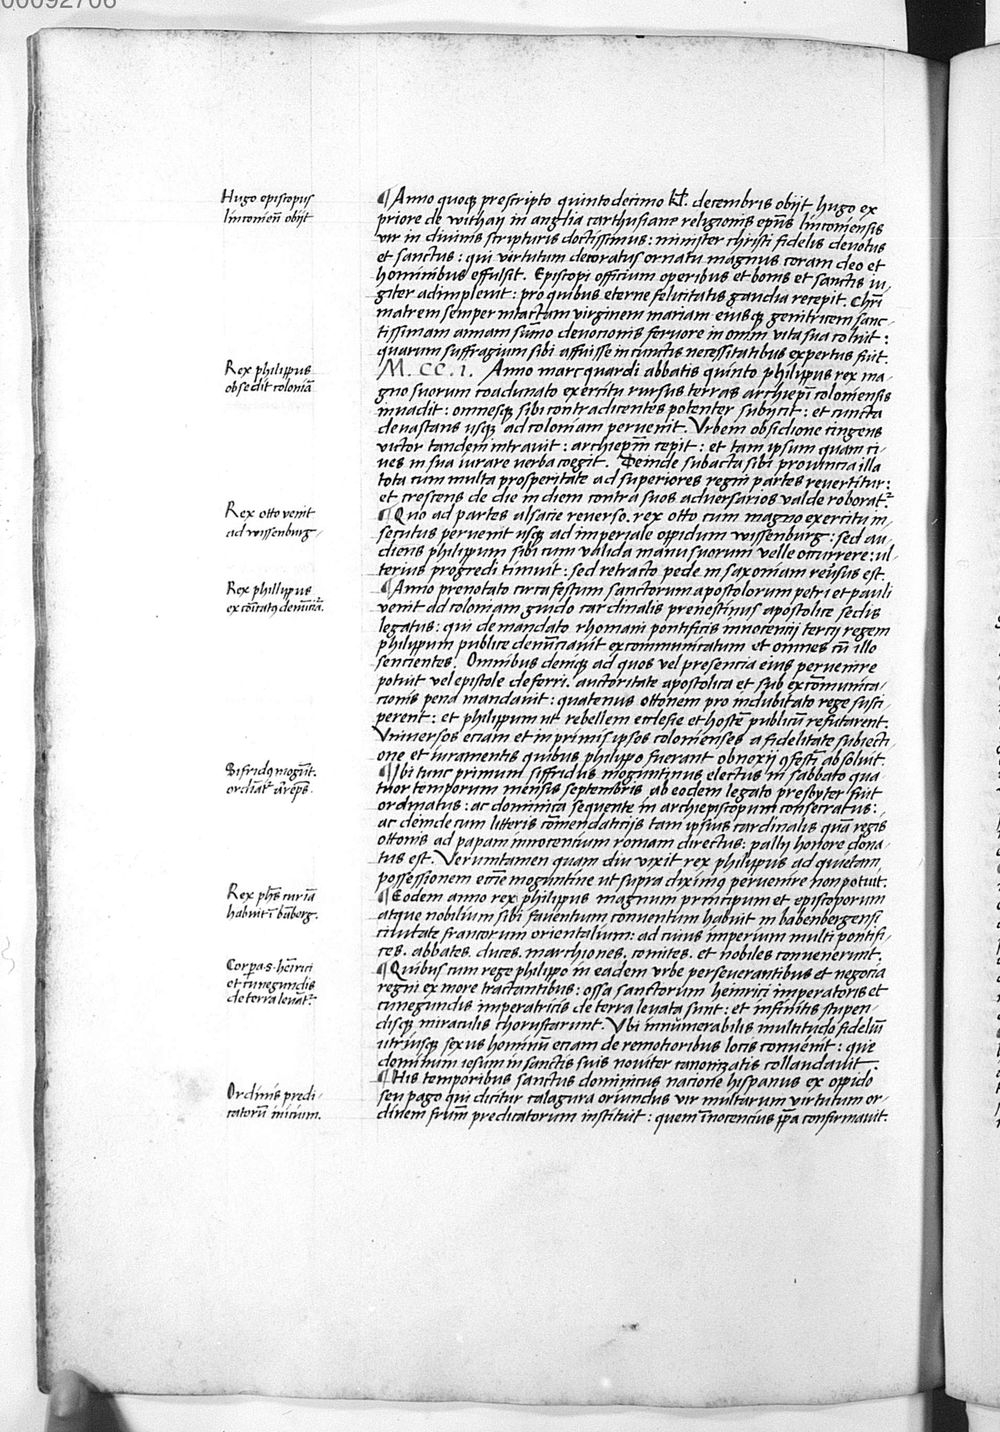 00092706
Hugo episcopus
linconieñ obijt
¶ Anno quoqꝫ prescripto quintodecimo kl̃. decembris obijt hugo ex
priore de withaij in anglia carthusiane religionis ep̃us linconiensis
vir in diuinis scripturis doctissimus: minister christi fidelis deuotus
et sanctus: qui virtutum decoratus ornatu magnus coram deo et
hominibus effulsit. Episcopi officium operibus et bonis et sanctis iu-
giter adimpleuit: pro quibus eterne felicitatis gaudia recepit. Chr̃i
matrem semper intactam virginem mariam eiusqꝫ genitricem sanc-
tissimam annam sum̃o deuocionis feruore in omni vita sua coluit:
quarum suffragium sibi affuisse in cunctis necessitatibus expertus fuit.
Rex philippus
obsedit coloniã
M. CC. I. Anno marcquardi abbatis quinto philippus rex ma-
gno suorum coadunato exercitu rursus terras archiep̃i coloniensis
inuadit: omnesqꝫ sibi contradicentes potenter subijcit: et cuncta
deuastans usqꝫ ad coloniam peruenit. Vrbem obsidione cingens
victor tandem intrauit: archiep̃m cepit: et tam ipsum quam ci-
ues in sua iurare verba coegit. Deinde subacta sibi prouincia illa
tota cum multa prosperitate ad superiores regni partes reuertitur:
et crescens de die in diem contra suos aduersarios valde roborat᷑.
Rex otto venit
ad wissenburg.
¶ Quo ad partes alsacie reuerso. rex otto cum magno exercitu in-
secutus peruenit usqꝫ ad imperiale opidum wissenburg: sed au-
diens philippum sibi cum valida manu suorum velle occurrere: ul-
terius progredi timuit: sed retracto pede in saxoniam reũsus est.
Rex phillipus
excõicatꝰ denũciat᷑.
¶ Anno prenotato circa festum sanctorum apostolorum petri et pauli
venit ad coloniam guido cardinalis prenestinus apostolice sedis
legatus: qui de mandato rhomani pontificis innocencij tercij regem
philippum publice denũciauit excommunicatum et omnes cũ illo
sencientes. Omnibus deniqꝫ ad quos vel presencia eius peruenire
potuit vel epistole deferri. auctoritate apostolica et sub excõmunica-
cionis pena mandauit: quatenus ottonem pro indubitato rege susci-
perent: et philippum ut rebellem ecclesie et hostẽ publicũ refutarent.
Vniuersos eciam et in primis ipsos colonienses a fidelitate subiecti-
one et iuramentis quibus philippo fuerant obnoxij ꝯfestĩ absoluit.
Sifridꝰ mogũt.
ordiat᷑ ar̃ep̃s.
¶ Vbi tunc primum siffridus moguntinus electus in sabbato qua-
tuor temporum mensis septembris ab eodem legato presbyter fuit
ordinatus: ac dominica sequente in archiepiscopum consecratus:
ac deinde cum litteris cõmendaticijs tam ipsius cardinalis quã regis
ottonis ad papam innocentium romam directus: pallij honore dona-
tus est. Verumtamen quam diu vixit rex philippus ad quietam
possessionem ecc̃ie moguntine ut supra diximꝰ peruenire non potuit.
Rex ph̃s curiã
habuit ĩ bãberg.
¶ Eodem anno rex philippus magnum principum et episcoporum
atque nobilium sibi fauentum conuentum habuit in babenbergensi
ciuitate francorum orientalium: ad cuius imperium multi pontifi-
ces. abbates. duces. marchiones. comites. et nobiles conuenerunt.
Corpa s. hẽirici
et cũnegundis
de terra leuãt᷑.
¶ Quibus cum rege philippo in eadem vrbe perseuerantibus et negocia
regni ex more tractantibus: ossa sanctorum heinrici imperatoris et
cunegundis imperatricis de terra leuata sunt: et infinitis stupen-
disqꝫ miraculis choruscarunt. Vbi innũmerabilis multitudo fideliũ
utriusqꝫ sexus hominũ eciam de remotioribus locis conuenit: que
dominum iesum in sanctis suis nouiter canonizatis collaudauit.
Ordinis predi-
catorũ inicium.
¶ His temporibus sanctus dominicus nacione hispanus ex oppido
seu pago qui dicitur calagura oriundus vir multarum virtutum or-
dinem frũm predicatorum instituit: quem ĩnocencius pp̃a confirmauit.